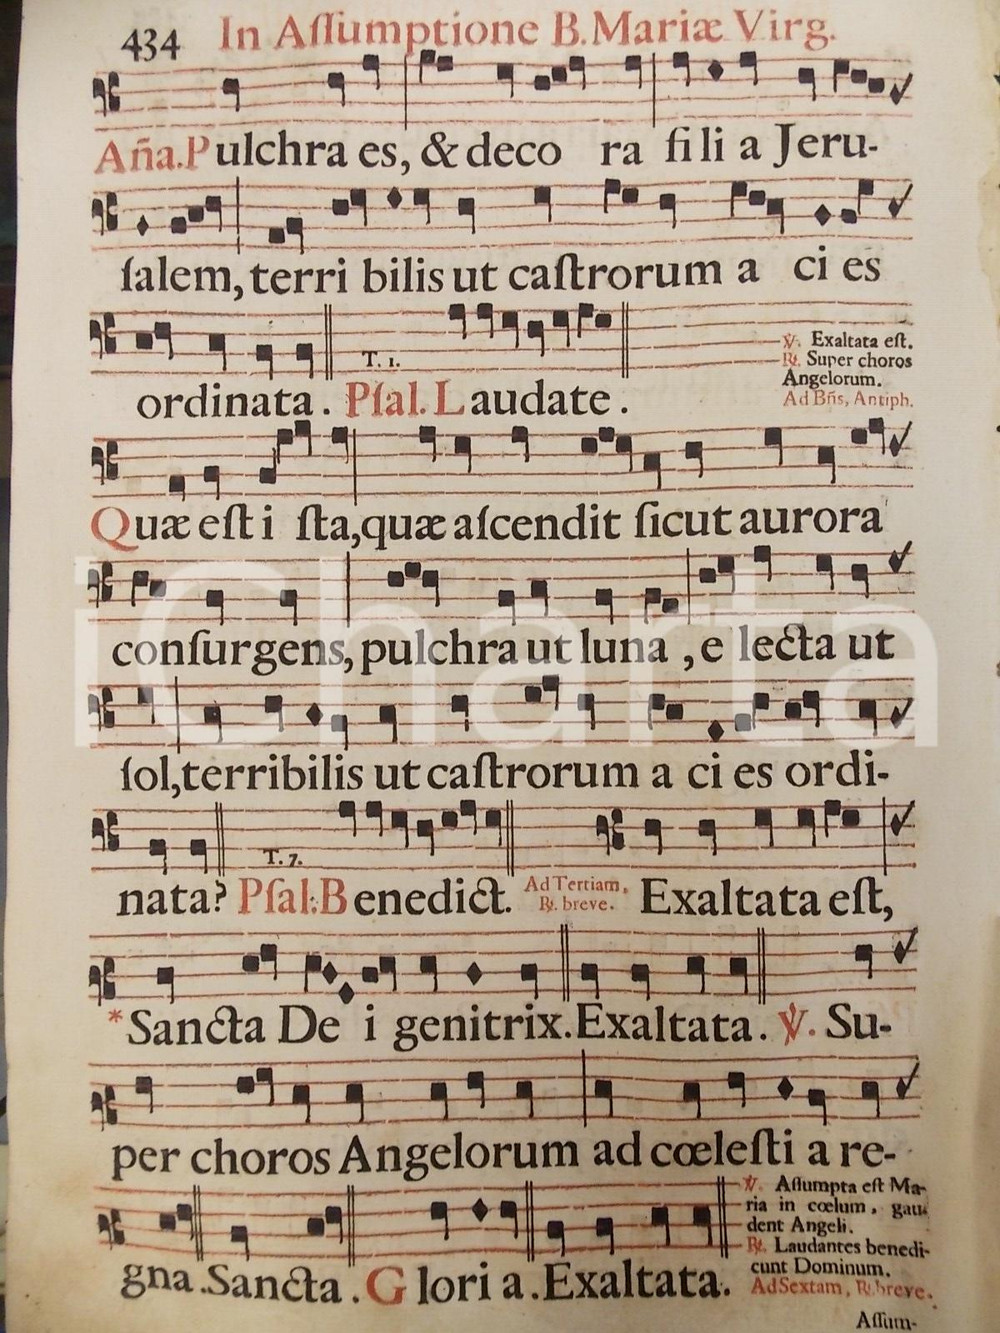 434 In Aſſumptione B. Mariæ Virg.
Aña. Pulchra es, & deco ra fi li a Jeru-
ſalem, terri bilis ut caſtrorum a ci es
T. 1.
ordinata. Pſal. Laudate.
℣. Exaltata eſt.
℟. Super choros
Angelorum.
Ad Bñs, Antiph.
Quæ eſt i ſta, quæ aſcendit ſicut aurora
conſurgens, pulchra ut luna, e lecta ut
ſol, terribilis ut caſtrorum a ci es ordi-
T. 7.
nata? Pſal: Benedict. Ad Tertiam, ℟. breve. Exaltata eſt,
*Sancta De i genitrix. Exaltata. ℣. Su-
per choros Angelorum ad cœleſti a re-
gna. Sancta. Glori a. Exaltata.
℣. Aſſumpta eſt Ma-
ria in cœlum, gau-
dent Angeli.
℟. Laudantes benedi-
cunt Dominum.
Ad Sextam, ℟. breve.
Aſſum-
iCharta